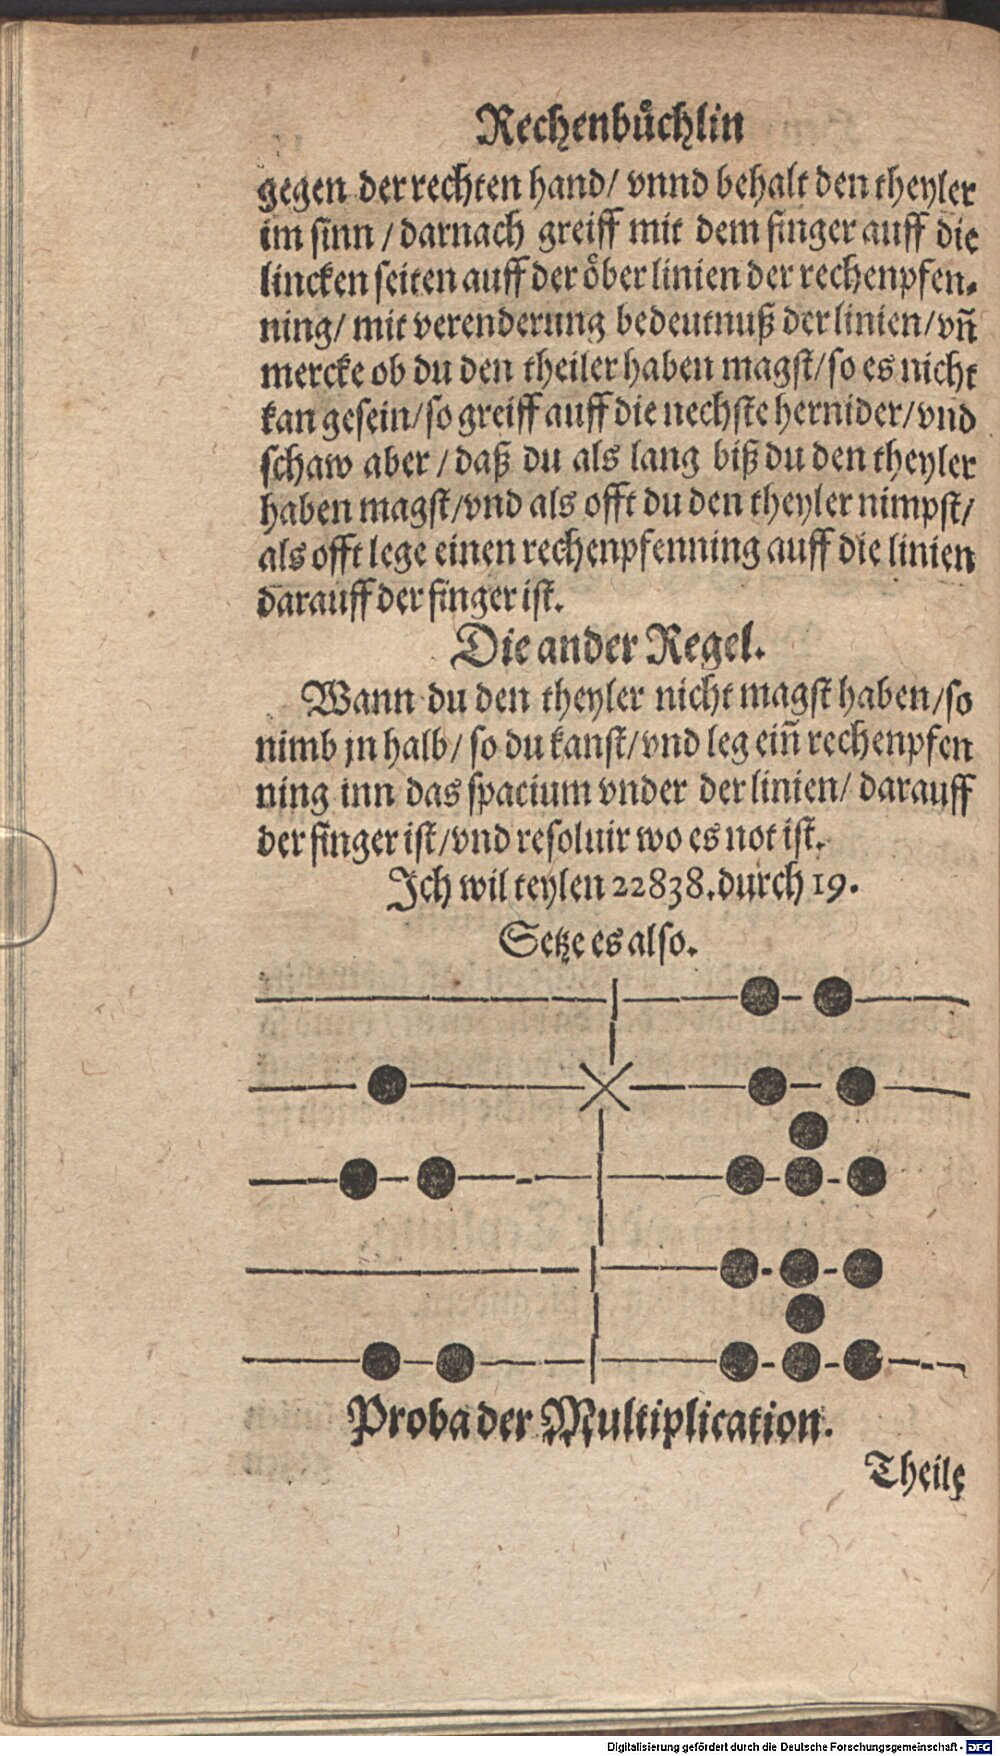 Rechenbuͤchlin
gegen der rechten hand/ vnnd behalt den theyler
im sinn / darnach greiff mit dem finger auff die
lincken seiten auff der oͤber linien der rechenpfen⸗
ning/ mit verenderung bedeutnuß der linien/ vn̄
mercke ob du den theiler haben magst/ so es nicht
kan gesein/ so greiff auff die nechste hernider/ vnd
schaw aber / daß du als lang biß du den theyler
haben magst/ vnd als offt du den theyler nimpst/
als offt lege einen rechenpfenning auff die linien
darauff der finger ist.
Die ander Regel.
Wann du den theyler nicht magst haben/ so
nimb jn halb/ so du kanst/ vnd leg ein̄ rechenpfen
ning inn das spacium vnder der linien/ darauff
der finger ist/ vnd resoluir wo es not ist.
Ich wil teylen 22838. durch 19.
Setze es also.
Proba der Multiplication.
Theile
Digitalisierung gefördert durch die Deutsche Forschungsgemeinschaft - DFG